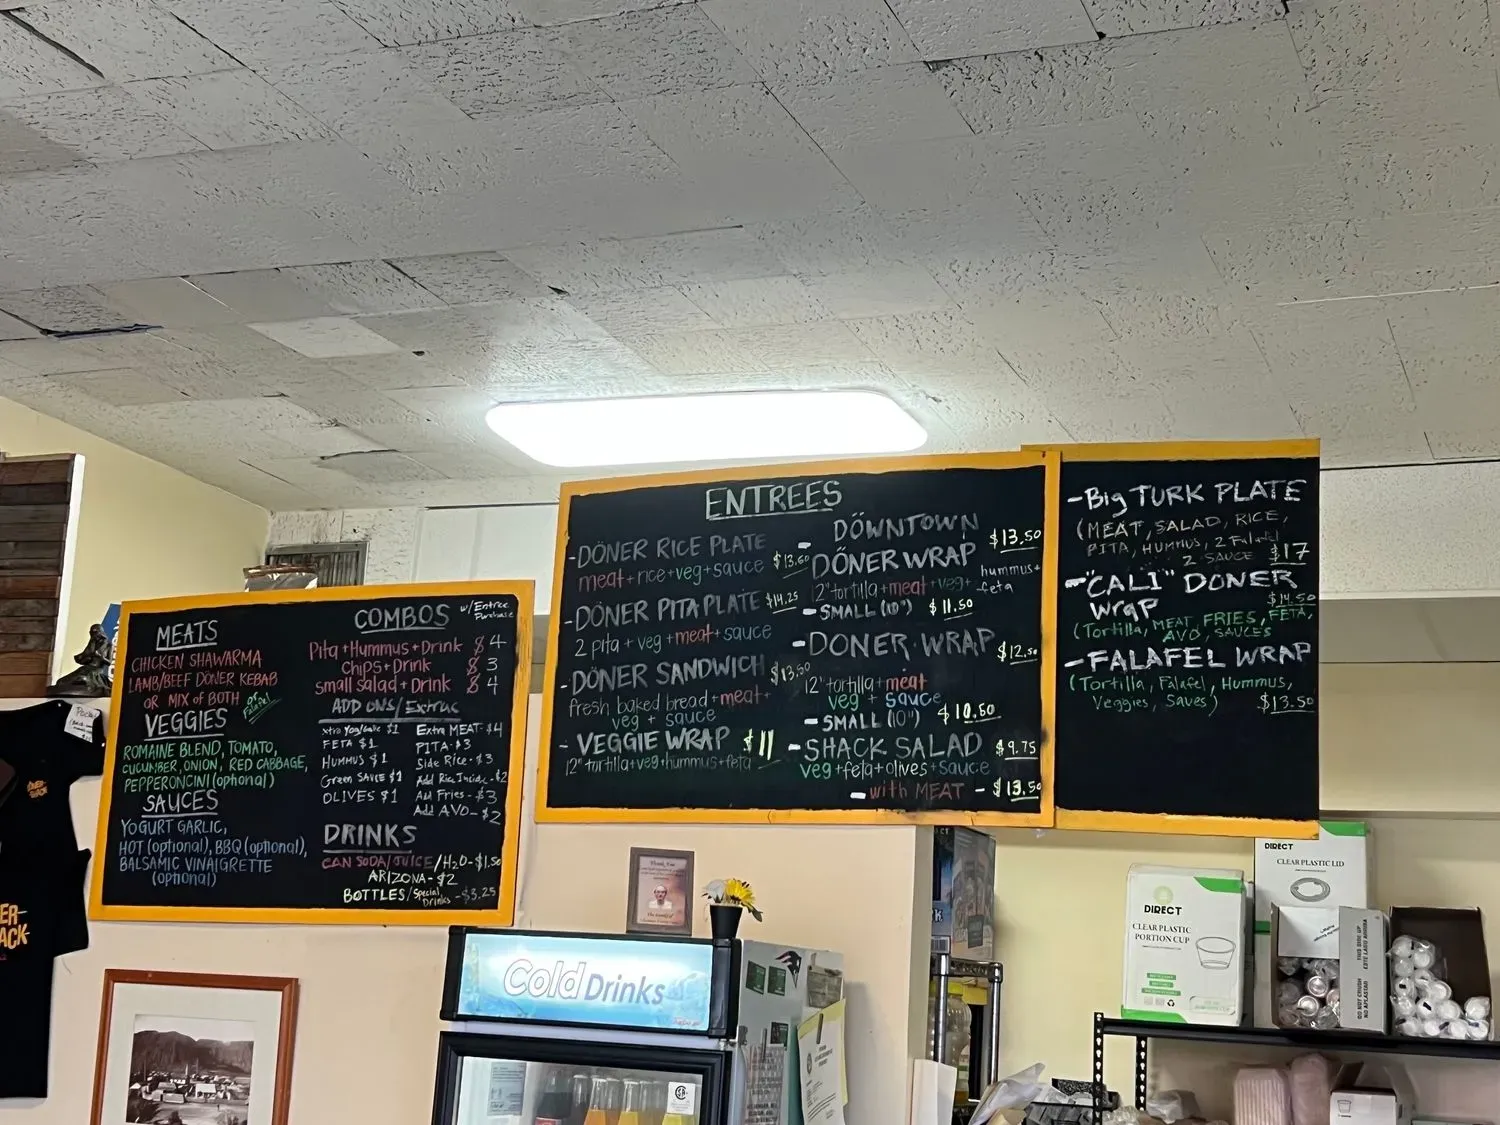 MEATS
CHICKEN SHAWARMA
LAMB/BEEF DÖNER KEBAB
OR MIX of BOTH or Falafel
VEGGIES
ROMAINE BLEND, TOMATO,
CUCUMBER, ONION, RED CABBAGE,
PEPPERONCINI (optional)
SAUCES
YOGURT GARLIC,
HOT (optional), BBQ (optional),
BALSAMIC VINAIGRETTE
(optional)
COMBOS w/Entree Purchase
Pita + Hummus + Drink $4
Chips + Drink $3
Small salad + Drink $4
ADD ONS/Extras
FETA $1
HUMMUS $1
Green SAUCE $1
OLIVES $1
Extra MEAT- $4
PITA- $3
Side Rice- $3
Add Fries- $3
Add AVO- $2
DRINKS
CAN SODA/JUICE/H2O- $1.50
ARIZONA- $2
BOTTLES/Special Drinks - $3.25
ENTREES
-DÖNER RICE PLATE
meat + rice + veg + sauce
-DÖNER PITA PLATE $14.25
2 pita + veg + meat + sauce
-DÖNER SANDWICH $13.50
fresh baked bread + meat +
veg + sauce
- VEGGIE WRAP $11
12" tortilla + veg + hummus + feta
- DÖWNTOWN
DÖNER WRAP $13.50
12" tortilla + meat + veg + hummus + feta
- SMALL (10") $11.50
- DONER WRAP $12.50
12" tortilla + meat
veg + sauce
- SMALL (10") $10.50
- SHACK SALAD $9.75
veg + feta + olives + sauce
- with MEAT - $13.50
-Big TURK PLATE
(MEAT, SALAD, RICE,
PITA, HUMMUS, 2 Falafel
2 SAUCE $17
-"CALI" DONER
WraP $14.50
(Tortilla, MEAT, FRIES, FETA,
AVO, SAUCES
-FALAFEL WRAP
(Tortilla, Falafel, Hummus,
Veggies, Saves) $13.50
Cold Drinks
Thank You
DIRECT
CLEAR PLASTIC LID
DIRECT
CLEAR PLASTIC
PORTION CUP